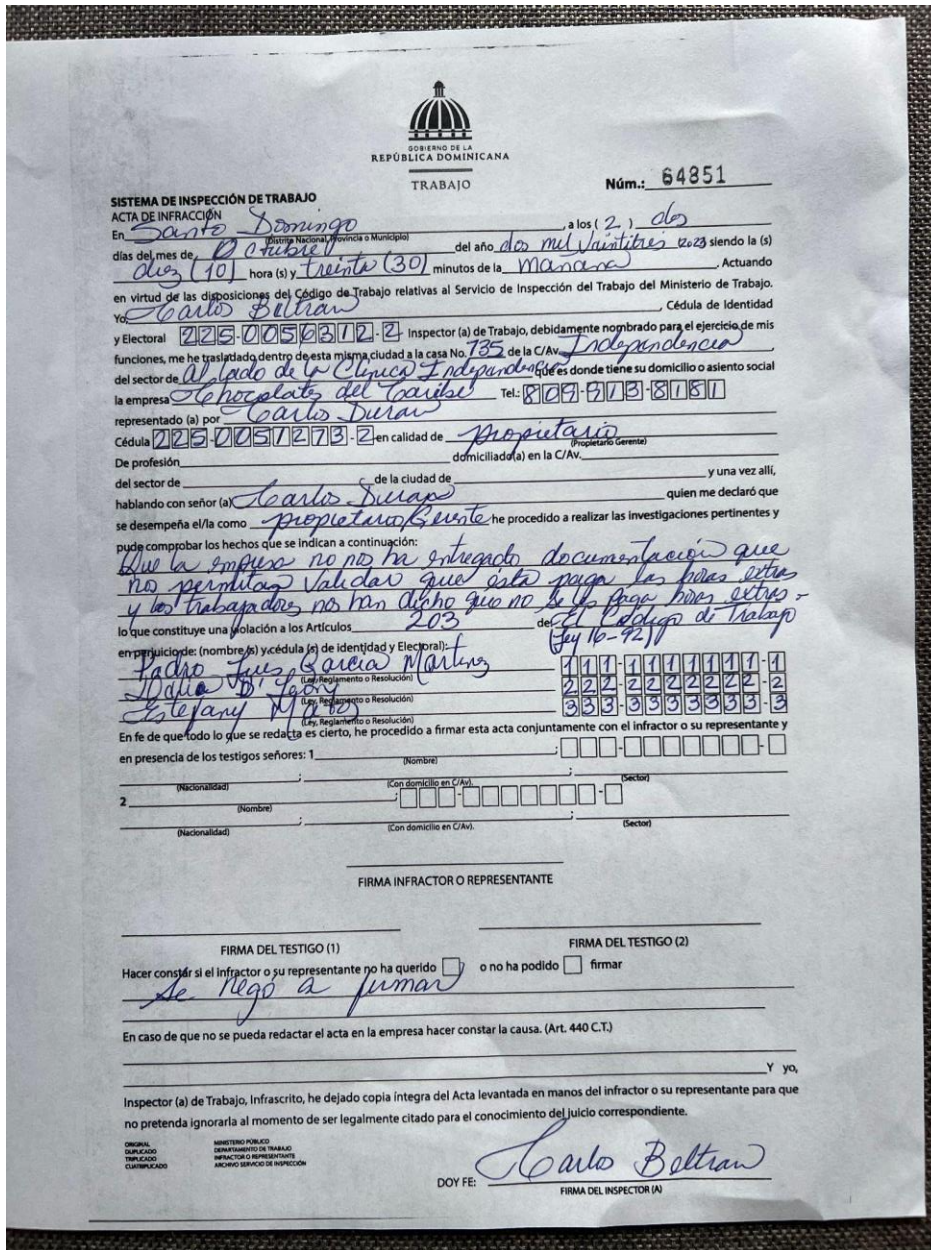 GOBIERNO DE LA
REPÚBLICA DOMINICANA
TRABAJO
Núm.: 64851
SISTEMA DE INSPECCIÓN DE TRABAJO
ACTA DE INFRACCIÓN
En Santo Domingo, a los (2) dos
(Distrito Nacional, Provincia o Municipio)
días del mes de Octubre del año dos mil Vaintitres (2023 siendo la (s)
diez (10) hora (s) y treinta (30) minutos de la mañana, Actuando
en virtud de las disposiciones del Código de Trabajo relativas al Servicio de Inspección del Trabajo del Ministerio de Trabajo.
Yo, Carlos Beltran, Cédula de Identidad
y Electoral 225-0056312-2 Inspector (a) de Trabajo, debidamente nombrado para el ejercicio de mis
funciones, me he trasladado dentro de esta misma ciudad a la casa No. 735 de la C/Av. Independencia
del sector de al lado de la Clínica Independencia que es donde tiene su domicilio o asiento social
la empresa Chocolates del Caribe Tel.: 809-913-8181
representado (a) por Carlos Duran
Cédula 225-0051273-2 en calidad de propietario
(Propietario Gerente)
De profesión domiciliado(a) en la C/Av.
del sector de de la ciudad de y una vez allí,
hablando con señor (a) Carlos Duran quien me declaró que
se desempeña el/la como propietario/Gerente he procedido a realizar las investigaciones pertinentes y
pude comprobar los hechos que se indican a continuación:
Que la empresa no nos ha entregado documentación que
nos permitan validar que ésta paga las horas extras
y los trabajadores nos han dicho que no se les paga horas extras-
lo que constituye una violación a los Artículos 203 del El Código de Trabajo
(Ley 16-92)
en perjuicio de: (nombre (s) y cédula (s) de identidad y Electoral):
Padro Luis García Martinez 111-1111111-1
(Ley, Reglamento o Resolución)
D' León 222-2222222-2
(Ley, Reglamento o Resolución)
Estefany Mato 333-3333333-3
(Ley, Reglamento o Resolución)
En fe de que todo lo que se redacta es cierto, he procedido a firmar esta acta conjuntamente con el infractor o su representante y
en presencia de los testigos señores: 1
(Nombre)
(Nacionalidad) (Con domicilio en C/Av). (Sector)
2
(Nombre)
(Nacionalidad) (Con domicilio en C/Av). (Sector)
FIRMA INFRACTOR O REPRESENTANTE
FIRMA DEL TESTIGO (1) FIRMA DEL TESTIGO (2)
Hacer constar si el infractor o su representante no ha querido o no ha podido firmar
Se negó a firmar
En caso de que no se pueda redactar el acta en la empresa hacer constar la causa. (Art. 440 C.T.)
Y yo,
Inspector (a) de Trabajo, Infrascrito, he dejado copia íntegra del Acta levantada en manos del infractor o su representante para que
no pretenda ignorarla al momento de ser legalmente citado para el conocimiento del juicio correspondiente.
ORIGINAL MINISTERIO PÚBLICO
DUPLICADO DEPARTAMENTO DE TRABAJO
TRIPLICADO INFRACTOR O REPRESENTANTE
CUATRIPLICADO ARCHIVO SERVICIO DE INSPECCIÓN
DOY FE: Carlos Beltran
FIRMA DEL INSPECTOR (A)